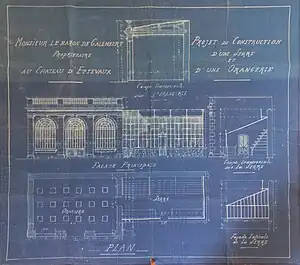 MONSIEUR LE BARON DE GALEMBERT
PROPRIÉTAIRE
AU CHATEAU D'ESTEVAUX
PROJET DE CONSTRUCTION
D'UNE SERRE
ET
D'UNE ORANGERIE
Coupe Transversale
sur L'ORANGERIE
FAÇADE PRINCIPALE
Coupe Transversale
sur la SERRE
ORANGERIE
SERRE
PLAN
Façade latérale
de la SERRE